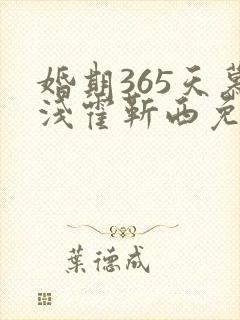 婚期365天慕
浅霍靳西免
葉德成